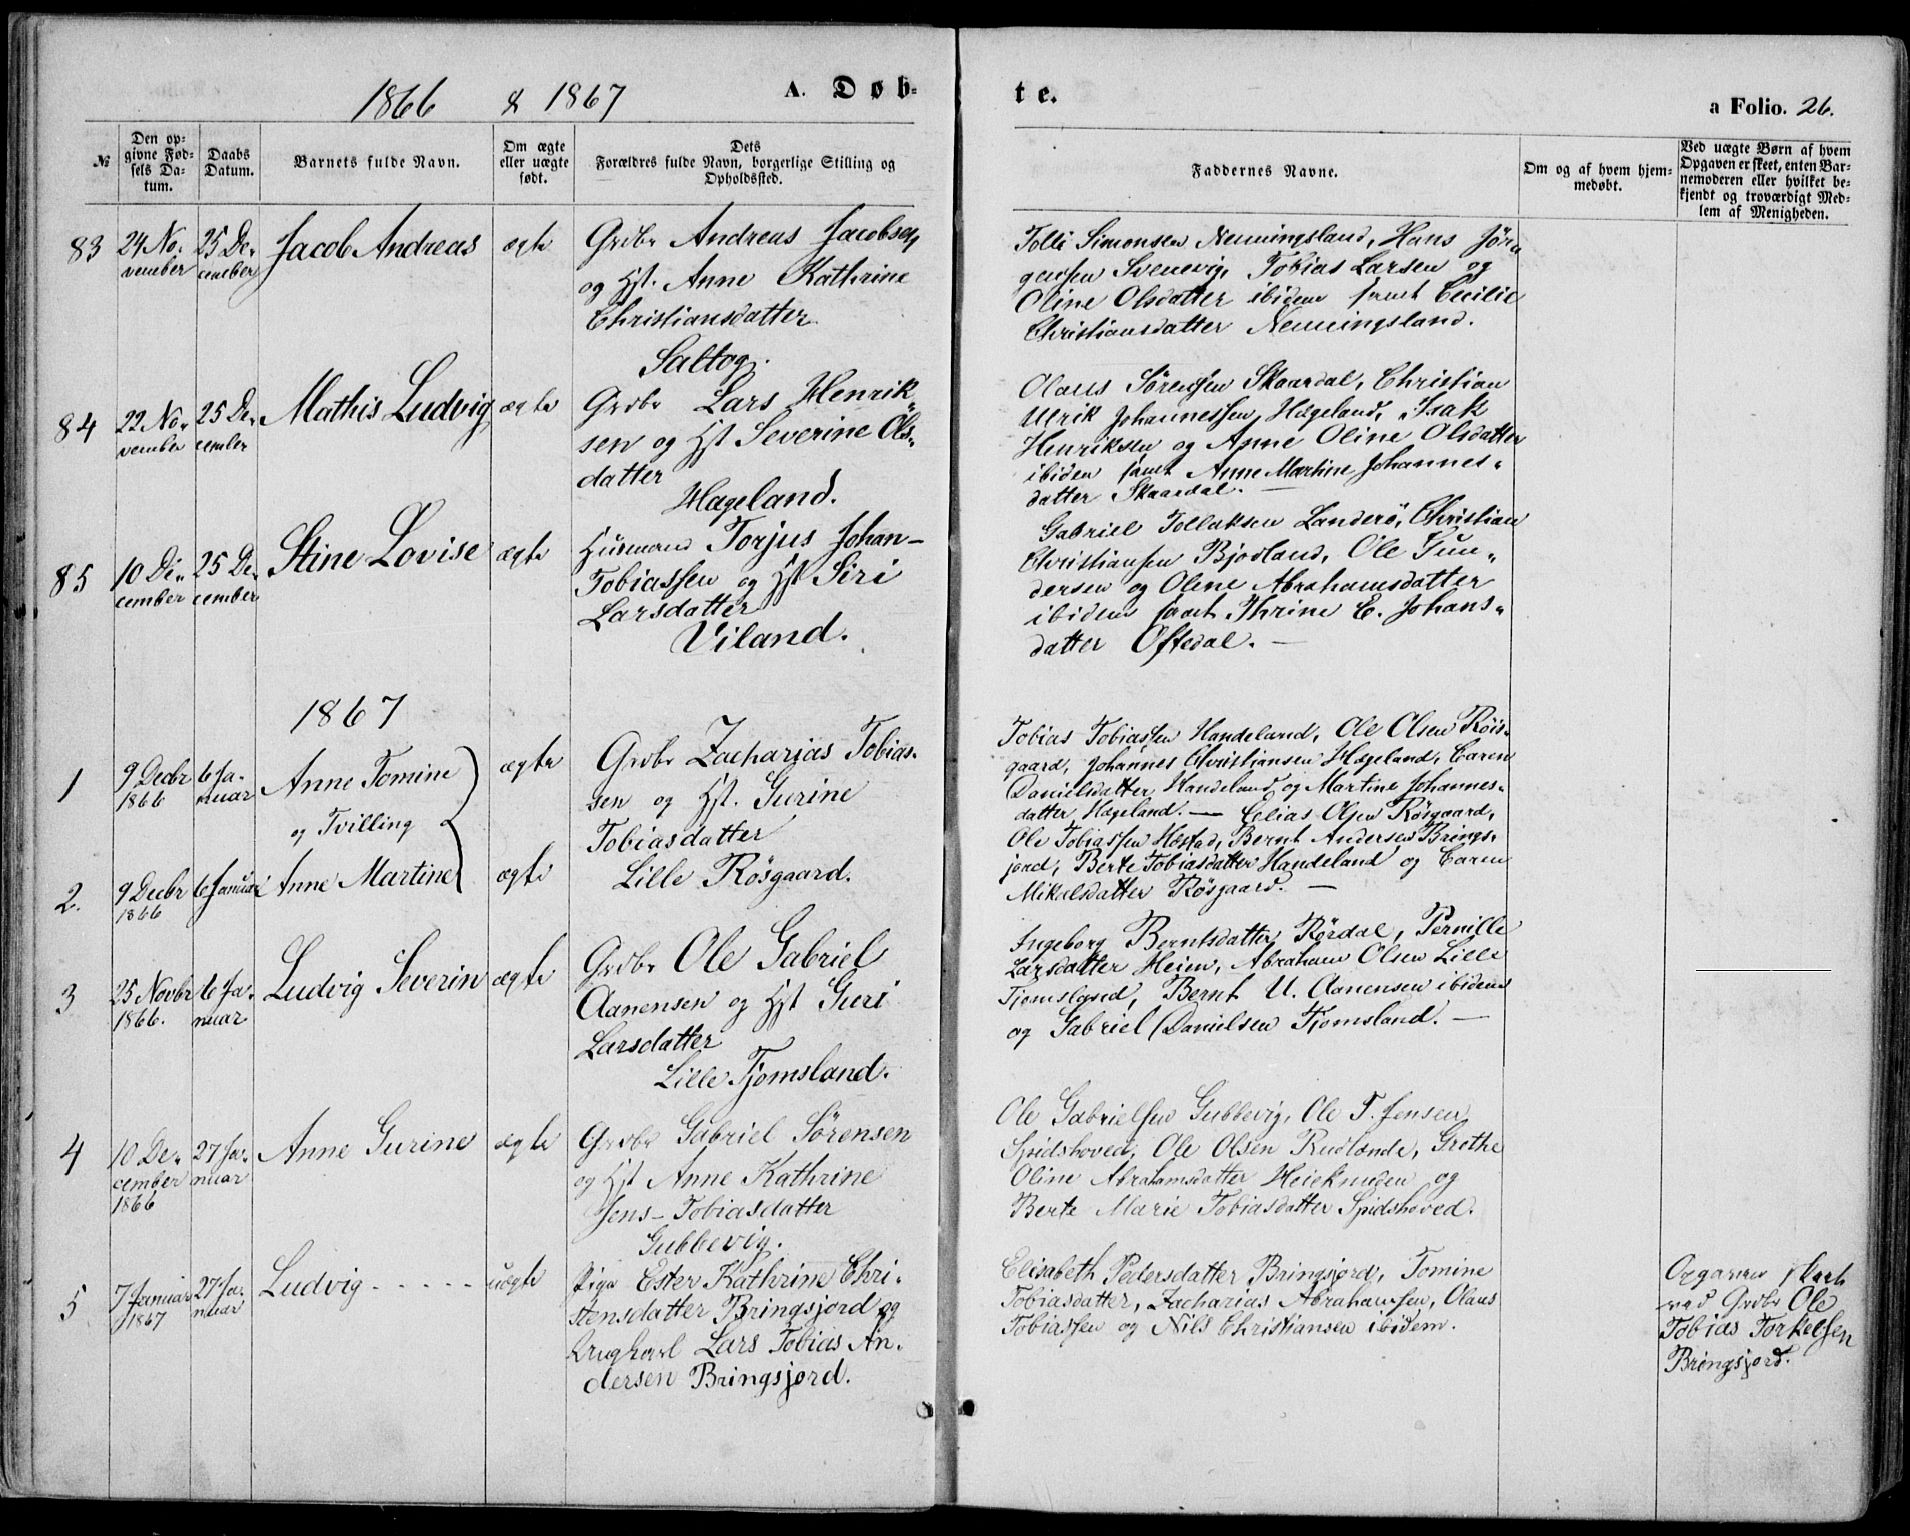 1866 & 1867
A. Døb-
te.
a Folio. 26.
№
Den op-
givne Fød-
sels Da-
tum.
Daabs
Datum.
Barnets fulde Navn.
Om ægte
eller uægte
født.
Dets
Forældres fulde Navn, borgerlige Stilling og
Opholdssted.
Faddernes Navne.
Om og af hvem hjem-
medøbt.
Ved uægte Børn af hvem
Opgaven er skeet, enten Bar-
nemoderen eller hvilket be-
kjendt og troværdigt Med-
lem af Menigheden.
83
24 No-
vember
25 De-
cember
Jacob Andreas
ægte
Grdbr Andreas Jacobsen
og Hst. Anne Kathrine
Christiansdatter
Saltog.
Tolli Simonsen Nenningsland, Hans Jør-
gensen Svenevig, Tobias Larsen og
Oline Olsdatter ibidem samt Cecilie
Christiansdatter Nenningsland.
84
22 No-
vember
25 De-
cember
Mathis Ludvig
ægte
Grdbr Lars Henrik-
sen og Hst Severine Ols-
datter
Hægeland.
Olaus Sørensen Skaardal, Christian
Ulrik Johannessen Hægeland, Isak
Henriksen og Anne Oline Olsdatter
ibidem samt Anne Martine Johannes-
datter Skaardal. —
85
10 De-
cember
25 De-
cember
Stine Lovise
ægte
Husmand Torjus Johan-
Tobiassen og Hst Siri
Larsdatter
Viland.
Gabriel Tollaksen Landerö, Christian
Christiansen Bjodland, Ole Gun-
dersen og Olene Abrahamsdatter
ibidem samt Thrine E. Johans-
datter Oftedal. —
1867
1
9 Decbr
1866
6 Ja-
nuar
Anne Tomine
og Tvilling
ægte
Grdbr Zacharias Tobias-
sen og Hst. Gurine
Tobiasdatter
Lille Røsgaard.
Tobias Tobiassen Handeland, Ole Olsen Røis-
gaard, Johannes Christiansen Hægeland, Caren
Danielsdatter Handeland og Martine Johannes-
datter Hægeland. — Elias Olsen Røsgaard,
Ole Tobiassen Høstad, Bernt Andersen Brings-
jord, Berte Tobiasdatter Handeland og Caren
Mikalsdatter Røsgaard. —
2.
9 Decbr
1866
6 Januar
Anne Martine
ægte
3
25 Novbr
1866.
6 Ja-
nuar
Ludvig Severin
ægte
Grdbr Ole Gabriel
Aanensen og Hst Guri
Larsdatter
Lille Tjomsland.
Ingeborg Berntsdatter Rørdal, Pernille
Larsdatter Heien, Abraham Olsen Lille
Tjomsland, Bernt U. Aanensen ibidem
og Gabriel Danielsen Tjomsland. —
4
10 De-
cember
1866
27 Ja-
nuar
Anne Gurine
ægte
Grdbr Gabriel Sørensen
og Hst Anne Kathrine
Jens-Tobiasdatter
Gubbevig.
Ole Gabrielsen Gubbevig, Ole T. Jensen
Spidshoved, Ole Olsen Rudlande, Grethe
Oline Abrahamsdatter Heieknuden og
Berte Marie Tobiasdatter Spidshoved.
5
7 Januar
1867
27 Ja-
nuar
Ludvig - - - - -
uægte
Pige Ester Kathrine Chri-
stensdatter Bringsjord og
Ungkarl Lars Tobias An-
dersen Bringsjord.
Elisabeth Pedersdatter Bringsjord, Tomine
Tobiasdatter, Zacharias Abrahamsen, Olaus
Tobiassen og Nils Christiansen ibidem.
Opgaven skeet
ved Grdbr Ole
Tobias Torkelsen
Bringsjord.